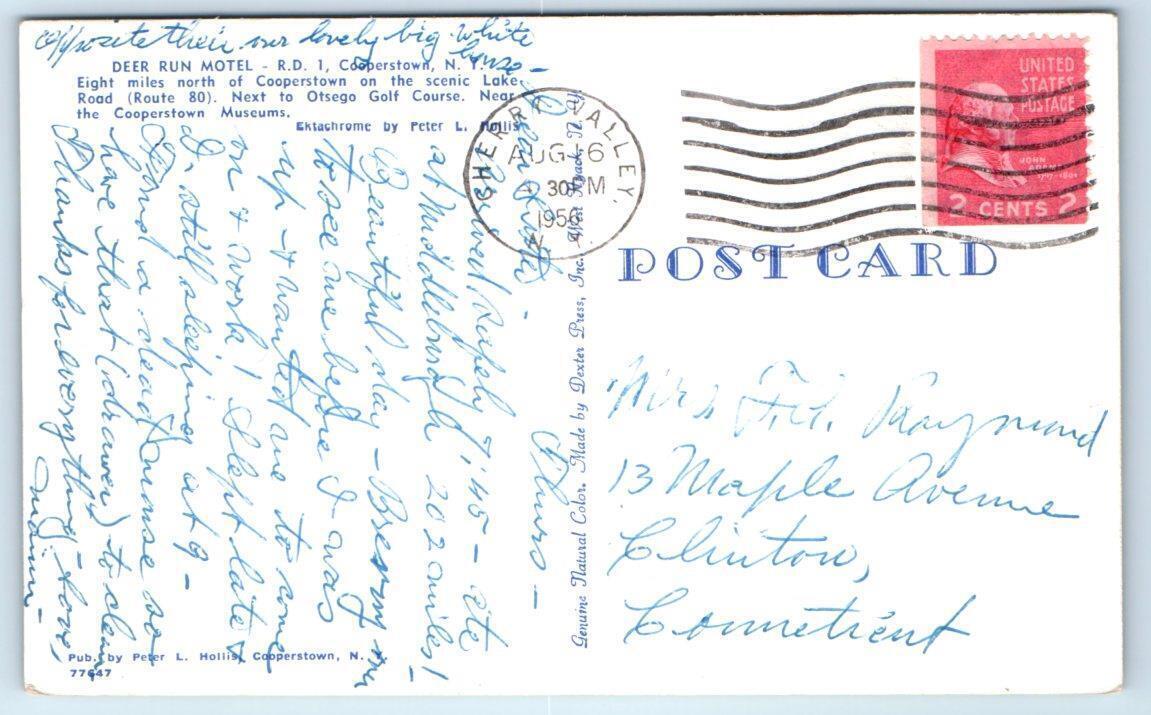 opposite their our lovely big white
house -
DEER RUN MOTEL - R.D. 1, Cooperstown, N. Y.
Eight miles north of Cooperstown on the scenic Lake
Road (Route 80). Next to Otsego Golf Course. Near
the Cooperstown Museums.
Ektachrome by Peter L. Hollis
Thurs -
Dear
7:45 - ate
at Middleburgh 202 miles!
Beautiful day -
to see me before I was
up & wanted me to come
on & work! Slept late &
I. still sleeping at 9 -
Found a dead mouse so
have that (drawer) to clean
Thanks for everything - love,
Pub. by Peter L. Hollis, Cooperstown, N. Y.
77647
Genuine Natural Color. Made by Dexter Press, Inc., West Nyack, N. Y.
CHERRY VALLEY,
AUG 16
30 PM
1956
UNITED
STATES
POSTAGE
JOHN
ADAMS
1797-1801
2 CENTS 2
POST CARD
Mrs Raymond
13 Maple Avenue
Clinton,
Conneticut